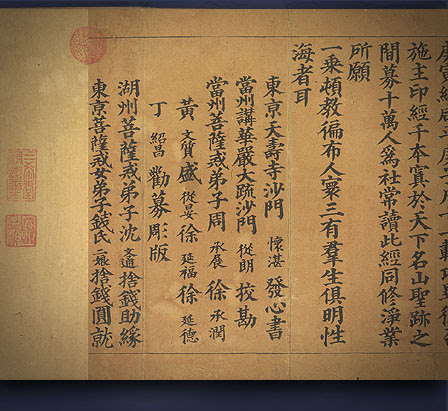 施主印經千本寘於天下名山聖跡之
間募十萬人爲社常讀此經同修淨業
所願
一乘頓教徧布人寰三有羣生俱明性
海者耳
東京天壽寺沙門 懷湛 發心書
當州講華嚴大疏沙門 從朗 挍勘
當州菩薩戒弟子周 承展 徐 承潤
黃 文質 盛 從晏 徐 延福 徐 延德
丁 紹昌 勸募彫版
湖州菩薩戒弟子沈 文通 捨錢助緣
東京菩薩戒女弟子錢氏 二娘 捨錢圓就